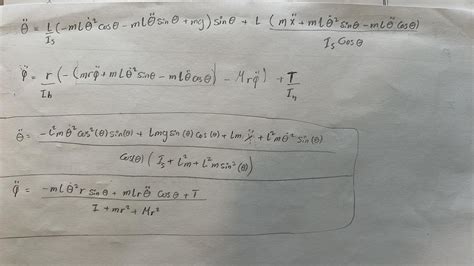 θ̈ = L/I_s (-mlθ̇² cosθ - mlθ̈ sinθ + mg) sinθ + L (mẍ + mlθ̇² sinθ - mlθ̈ cosθ) / I_s cosθ
φ̈ = r/I_h (-(mrφ̈ + mlθ̇² sinθ - mlθ̈ cosθ) - Mrφ̈) + T/I_h
θ̈ = (-l²mθ̇² cos²(θ) sin(θ) + Lmg sin(θ) cos(θ) + lmẍ + l²mθ̇² sin(θ)) / (cos(θ) (I_s + l²m + l²m sin²(θ)))
φ̈ = (-mlθ̇² r sinθ + mlrθ̈ cosθ + T) / (I + mr² + Mr²)